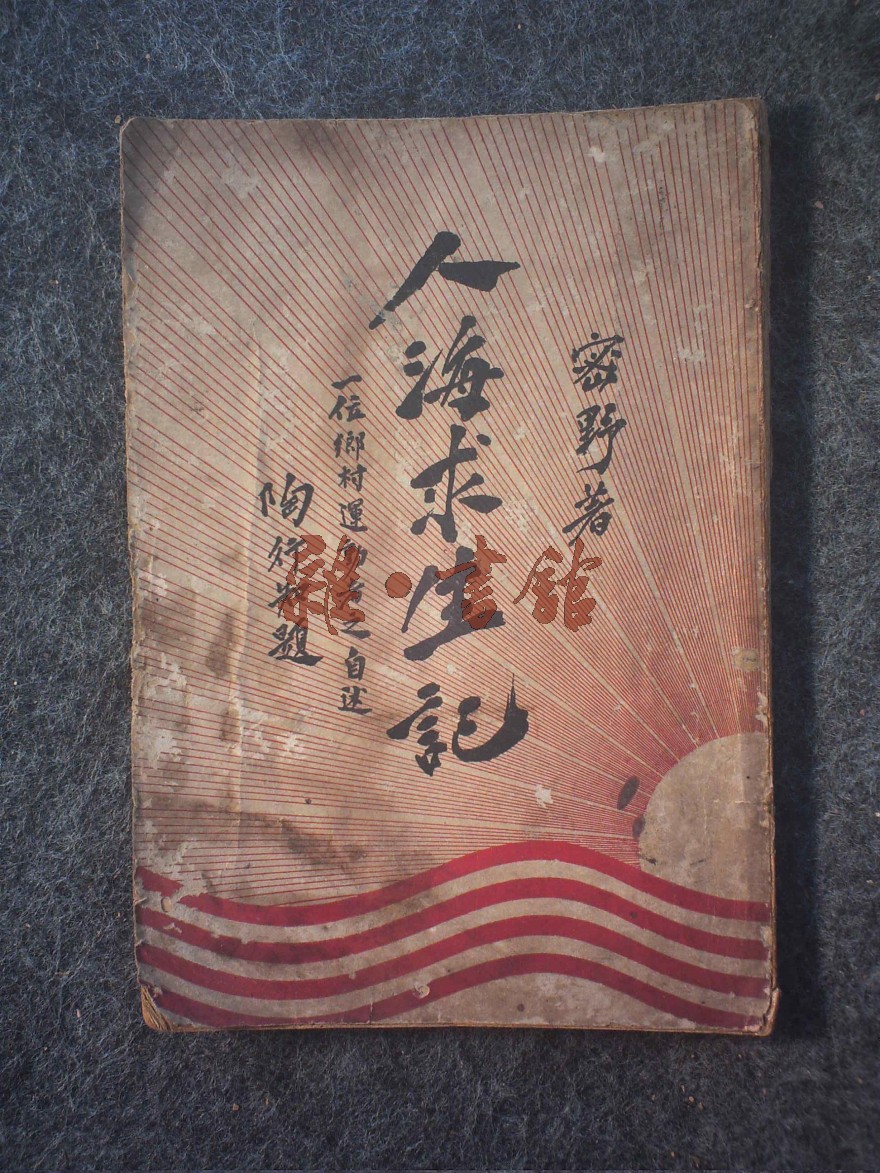 密野著
人海求生記
一位鄉村運動者之自述
陶行知題
雜·書館